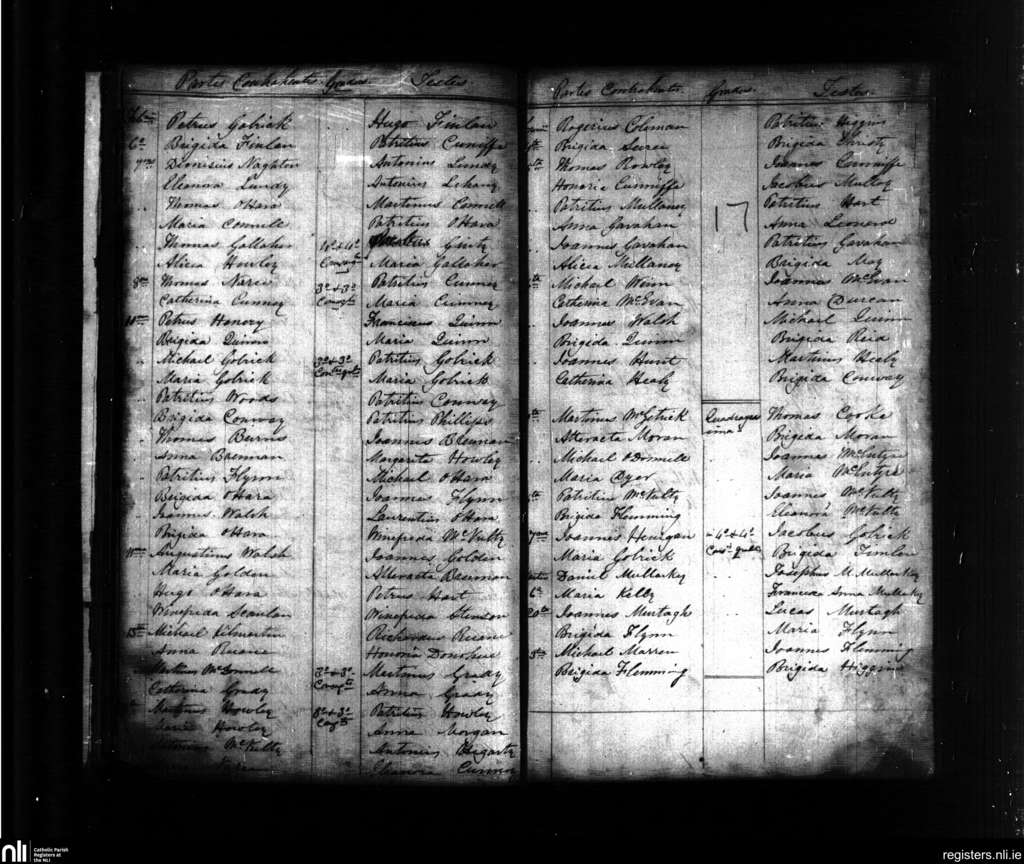 Partes Contrahentes Gradus. Testes
Petrus Gobrick Hugo Finlan
6a Brigida Finlan Patritius Cunniffe
7ma Dionisius Naghten Antonius Lundy
Elenora Lundy Antonius
Thomas O'Hara Martinus Connell
Maria Connell Patritius O'Hara
Thomas Gallaher 4o & 4o
Alicia Howley Consangt Maria Gallaher
8va Thomas Naries Patritius Cunney
Catherina Cunney 3o & 3o Consgt Maria Cunney
Petrus Henery Franciscus Quinn
Brigida Quinn Maria Quinn
Michael Gobrick 3o & 3o Patritius Gobrick
Maria Gobrick Maria Gobrick
Patritius Woods Patritius Conway
Brigida Conway Patritius Phillips
Thomas Burns Joannes Brennan
Anna Brennan Margerita Howley
Patritius Flynn Michael O'Hara
Brigida O'Hara Joannes Flynn
Joannes Walsh Laurentius O'Hara
Brigida O'Hara Winefreda McNulty
Augustinus Walsh Joannes Golden
Maria Golden Atteracta Brennan
Hugo O'Hara Petrus Hart
Winefrida Scanlan Winefrida Stenson
Michael Kilmartin Richardus Ruane
Anna Ruane Honoria Donohue
McDonnell 3o & 3o Martinus Grady
Catherina Grady Consgt Anna Grady
Martinus Howley 3o & 3o Patritius Howley
Maria Howley Anna Morgan
McNulty Antonius Hegarty
Eleanora
Partes Contrahentes Gradus. Testes.
Rogerius Coleman Patritius Higgins
Brigida Brigida Christy
Thomas Rowley Joannes Connniffe
Honoria Cunniffe Jacobus Mulloy
Patritius Mullaney Patritius Hart
Anna Gavahan 17 Anna Leonard
Joannes Gavahan Patritius Gavahan
Alicia Mullaney Brigida May
Michael Joannes McEvan
Catherina McEvan Anna Durcan
Joannes Walsh Michael Quinn
Brigida Quinn Brigida Reid
Joannes Hunt Martinus Healy
Catherina Healy Brigida Conway
Martinus McGetrick Quadrages Thomas Cooke
Atteracta Moran ima Brigida Moran
Michael O'Donnell Joannes McEntyre
Maria Dyer Maria McEntyre
Patritius McNulty Joannes McNulty
Brigida Flemming Eleanora McNulty
7ma Joannes Henigan 4o & 4o Jacobus Gobrick
Maria Gobrick Brigida Finlan
Daniel Mullarkey Josephus M. Mullarkey
6a Maria Kelly Francisca Anna Mullarkey
20a Joannes Murtagh Lucas Murtagh
Brigida Flynn Maria Flynn
Michael Marren Joannes Flemming
Brigida Flemming Brigida Higgins
nli Catholic Parish
Registers at
the NLI
registers.nli.ie